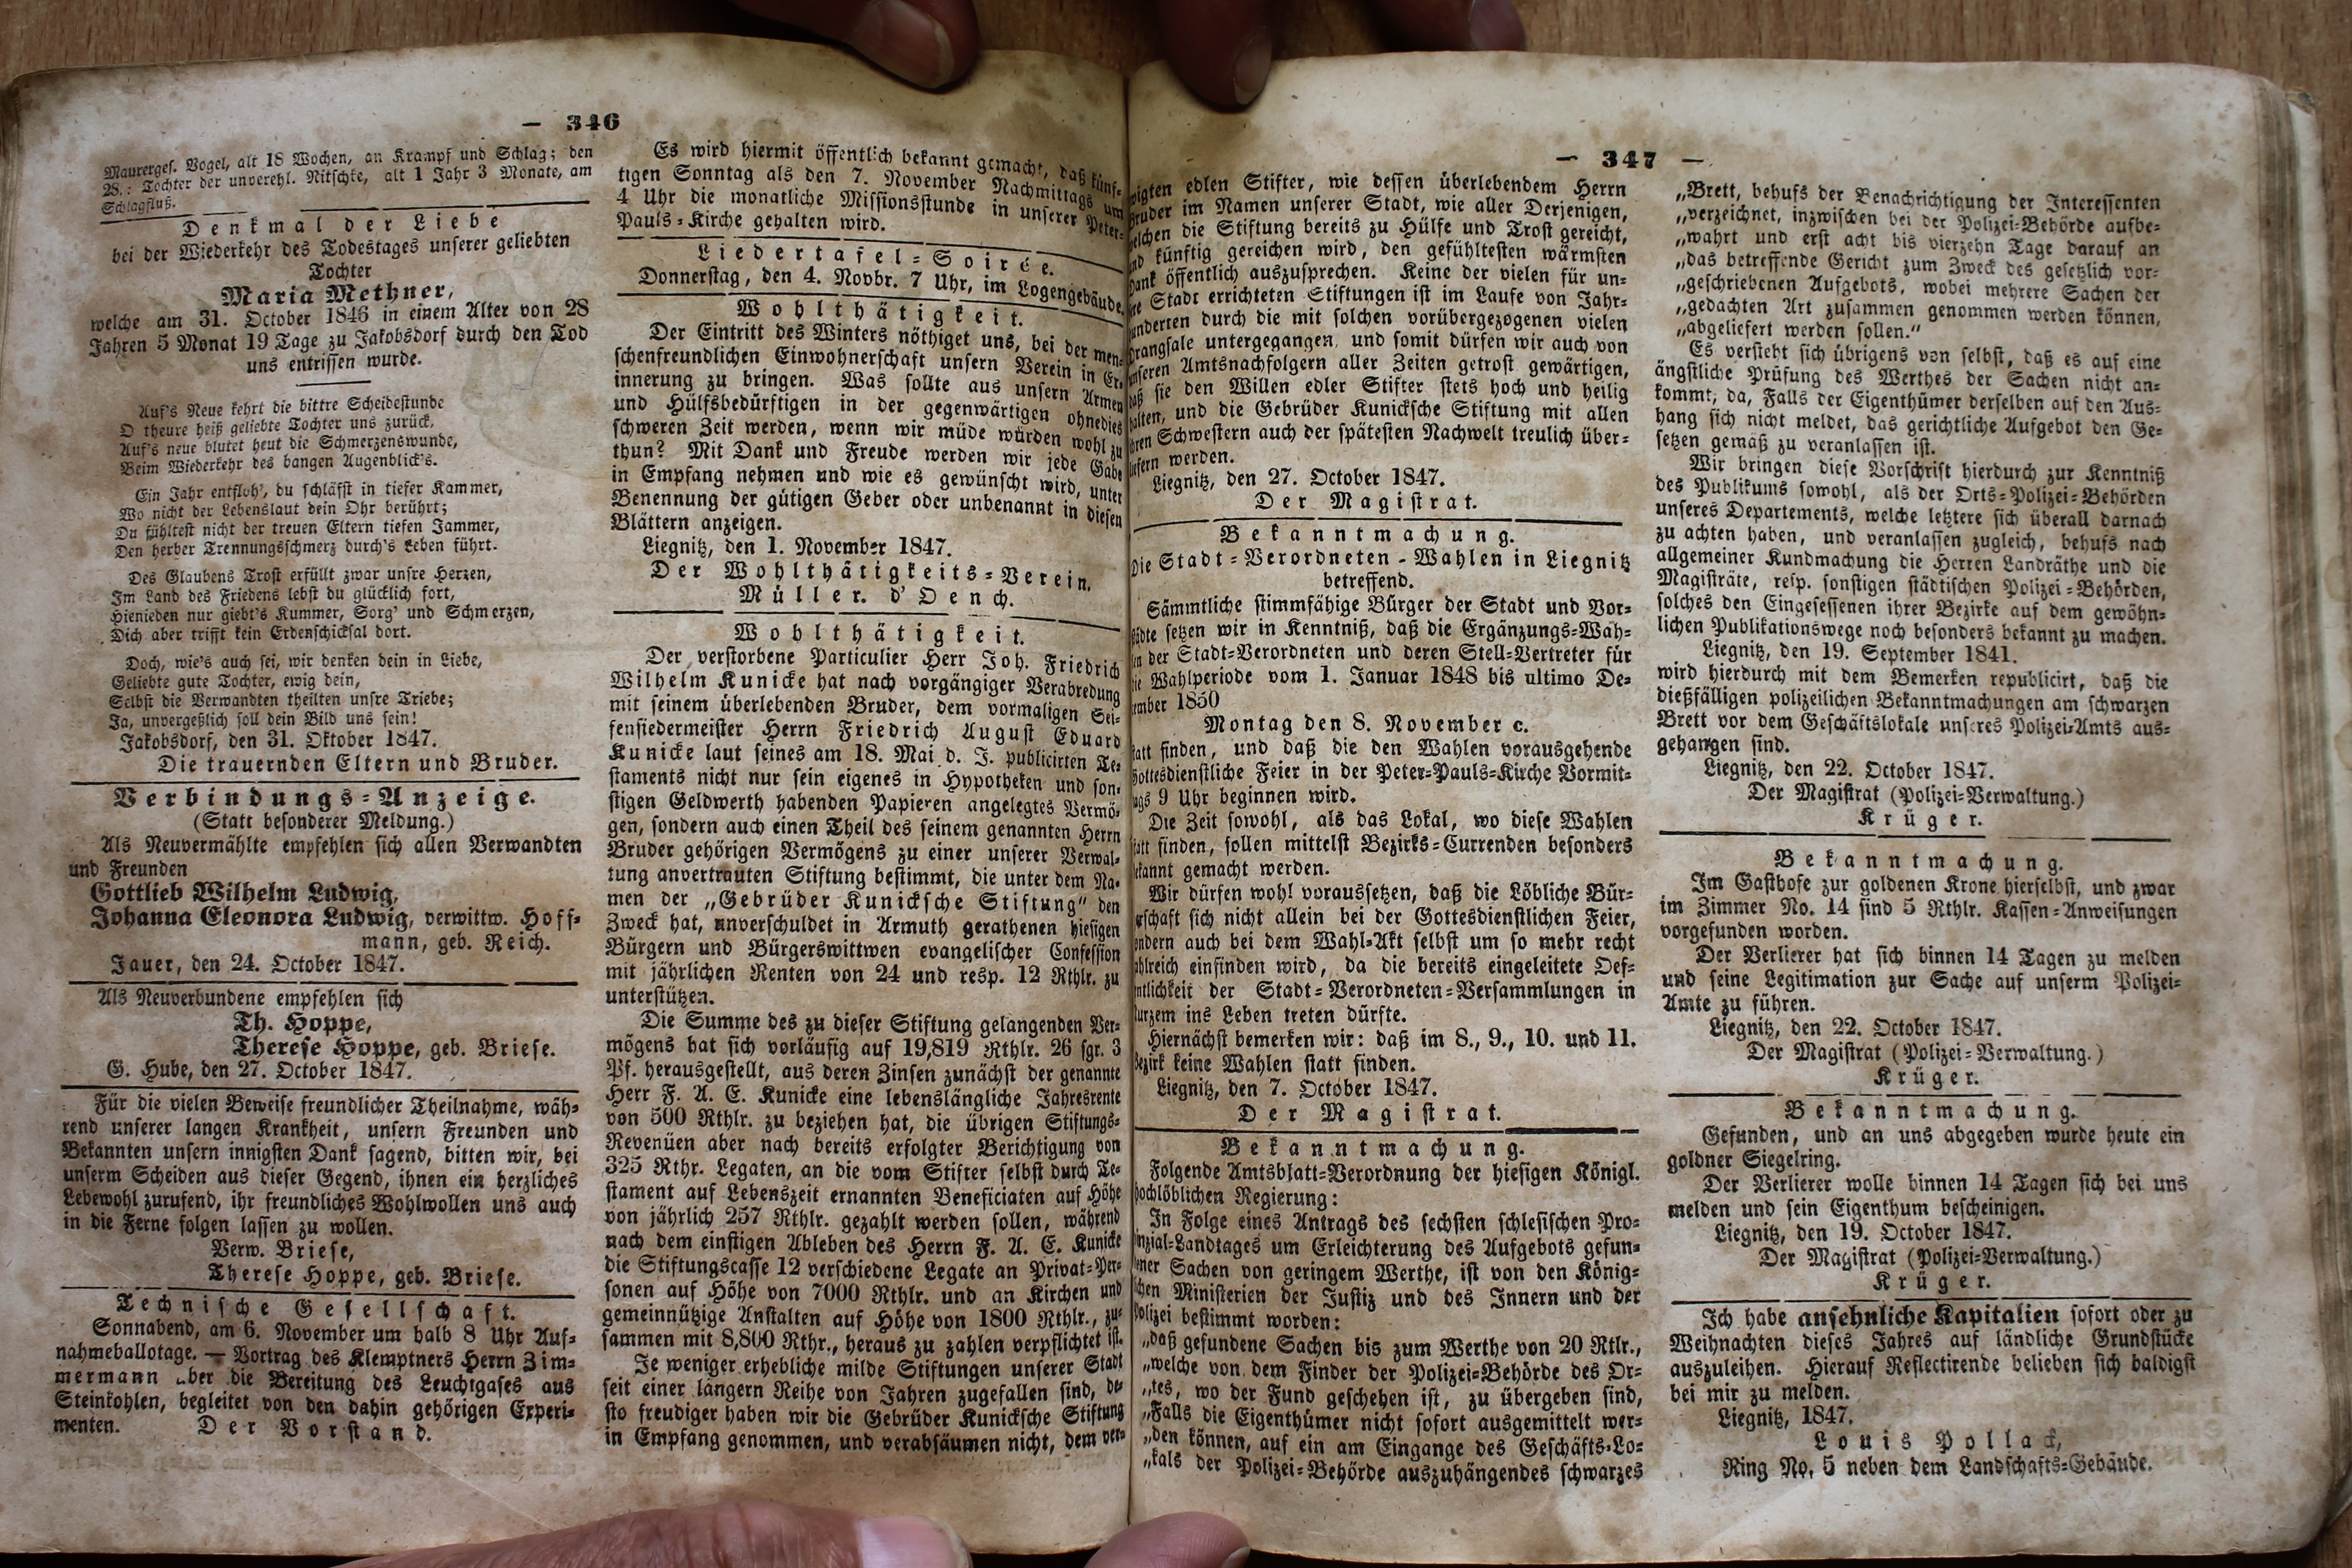 — 346
Maurerges. Vogel, alt 18 Wochen, an Krampf und Schlag; den
28.: Tochter der unverehl. Nitschke, alt 1 Jahr 3 Monate, am
Schlagfluß.
Denkmal der Liebe
bei der Wiederkehr des Todestages unserer geliebten
Tochter
Maria Methner,
welche am 31. October 1846 in einem Alter von 28
Jahren 5 Monat 19 Tage zu Jakobsdorf durch den Tod
uns entrissen wurde.
Auf's Neue kehrt die bittre Scheidestunde
O theure heiß geliebte Tochter uns zurück,
Auf's neue blutet heut die Schmerzenswunde,
Beim Wiederkehr des bangen Augenblick's.
Ein Jahr entfloh', du schläfst in tiefer Kammer,
Wo nicht der Lebenslaut dein Ohr berührt;
Du fühltest nicht der treuen Eltern tiefen Jammer,
Den herber Trennungsschmerz durch's Leben führt.
Des Glaubens Trost erfüllt zwar unsre Herzen,
Im Land des Friedens lebst du glücklich fort,
Hienieden nur giebt's Kummer, Sorg' und Schmerzen,
Dich aber trifft kein Erdenschicksal dort.
Doch, wie's auch sei, wir denken dein in Liebe,
Geliebte gute Tochter, ewig dein,
Selbst die Verwandten theilten unsre Triebe;
Ja, unvergeßlich soll dein Bild uns sein!
Jakobsdorf, den 31. Oktober 1847.
Die trauernden Eltern und Bruder.
Verbindungs-Anzeige.
(Statt besonderer Meldung.)
Als Neuvermählte empfehlen sich allen Verwandten
und Freunden
Gottlieb Wilhelm Ludwig,
Johanna Eleonora Ludwig, verwittw. Hoff-
mann, geb. Reich.
Jauer, den 24. October 1847.
Als Neuverbundene empfehlen sich
Th. Hoppe,
Therese Hoppe, geb. Briese.
G. Hube, den 27. October 1847.
Für die vielen Beweise freundlicher Theilnahme, wäh-
rend unserer langen Krankheit, unsern Freunden und
Bekannten unsern innigsten Dank sagend, bitten wir, bei
unserm Scheiden aus dieser Gegend, ihnen ein herzliches
Lebewohl zurufend, ihr freundliches Wohlwollen uns auch
in die Ferne folgen lassen zu wollen.
Verw. Briese,
Therese Hoppe, geb. Briese.
Technische Gesellschaft.
Sonnabend, am 6. November um halb 8 Uhr Auf-
nahmeballotage. — Vortrag des Klemptners Herrn Zim-
mermann über die Bereitung des Leuchtgases aus
Steinkohlen, begleitet von den dahin gehörigen Experi-
menten. Der Vorstand.
Es wird hiermit öffentlich bekannt gemacht, daß künf-
tigen Sonntag als den 7. November Nachmittags um
4 Uhr die monatliche Missionsstunde in unserer Peter-
Pauls-Kirche gehalten wird.
Liedertafel-Soirée.
Donnerstag, den 4. Novbr. 7 Uhr, im Logengebäude.
Wohlthätigkeit.
Der Eintritt des Winters nöthiget uns, bei der men-
schenfreundlichen Einwohnerschaft unsern Verein in Er-
innerung zu bringen. Was sollte aus unsern Armen
und Hülfsbedürftigen in der gegenwärtigen ohnedies
schweren Zeit werden, wenn wir müde würden wohl zu
thun? Mit Dank und Freude werden wir jede Gabe
in Empfang nehmen und wie es gewünscht wird, unter
Benennung der gütigen Geber oder unbenannt in diesen
Blättern anzeigen.
Liegnitz, den 1. November 1847.
Der Wohlthätigkeits-Verein.
Müller. d'Oench.
Wohlthätigkeit.
Der verstorbene Particulier Herr Joh. Friedrich
Wilhelm Kunicke hat nach vorgängiger Verabredung
mit seinem überlebenden Bruder, dem vormaligen Sei-
fensiedermeister Herrn Friedrich August Eduard
Kunicke laut seines am 18. Mai d. J. publicirten Te-
staments nicht nur sein eigenes in Hypotheken und son-
stigen Geldwerth habenden Papieren angelegtes Vermö-
gen, sondern auch einen Theil des seinem genannten Herrn
Bruder gehörigen Vermögens zu einer unserer Verwal-
tung anvertrauten Stiftung bestimmt, die unter dem Na-
men der „Gebrüder Kunicksche Stiftung“ den
Zweck hat, unverschuldet in Armuth gerathenen hiesigen
Bürgern und Bürgerswittwen evangelischer Confession
mit jährlichen Renten von 24 und resp. 12 Rthlr. zu
unterstützen.
Die Summe des zu dieser Stiftung gelangenden Ver-
mögens hat sich vorläufig auf 19,819 Rthlr. 26 sgr. 3
Pf. herausgestellt, aus deren Zinsen zunächst der genannte
Herr F. A. E. Kunicke eine lebenslängliche Jahresrente
von 500 Rthlr. zu beziehen hat, die übrigen Stiftungs-
Revenüen aber nach bereits erfolgter Berichtigung von
325 Rthr. Legaten, an die vom Stifter selbst durch Te-
stament auf Lebenszeit ernannten Beneficiaten auf Höhe
von jährlich 257 Rthlr. gezahlt werden sollen, während
nach dem einstigen Ableben des Herrn F. A. E. Kunicke
die Stiftungscasse 12 verschiedene Legate an Privat-Per-
sonen auf Höhe von 7000 Rthlr. und an Kirchen und
gemeinnützige Anstalten auf Höhe von 1800 Rthlr., zu-
sammen mit 8,800 Rthr., heraus zu zahlen verpflichtet ist.
Je weniger erhebliche milde Stiftungen unserer Stadt
seit einer längern Reihe von Jahren zugefallen sind, de-
sto freudiger haben wir die Gebrüder Kunicksche Stiftung
in Empfang genommen, und verabsäumen nicht, dem ver-
— 347 —
wigten edlen Stifter, wie dessen überlebendem Herrn
Bruder im Namen unserer Stadt, wie aller Derjenigen,
welchen die Stiftung bereits zu Hülfe und Trost gereicht,
und künftig gereichen wird, den gefühltesten wärmsten
Dank öffentlich auszusprechen. Keine der vielen für un-
sre Stadt errichteten Stiftungen ist im Laufe von Jahr-
hunderten durch die mit solchen vorübergezogenen vielen
Drangsale untergegangen, und somit dürfen wir auch von
unseren Amtsnachfolgern aller Zeiten getrost gewärtigen,
daß sie den Willen edler Stifter stets hoch und heilig
halten, und die Gebrüder Kunicksche Stiftung mit allen
ihren Schwestern auch der spätesten Nachwelt treulich über-
liefern werden.
Liegnitz, den 27. October 1847.
Der Magistrat.
Bekanntmachung.
Die Stadt-Verordneten-Wahlen in Liegnitz
betreffend.
Sämmtliche stimmfähige Bürger der Stadt und Vor-
städte setzen wir in Kenntniß, daß die Ergänzungs-Wah-
len der Stadt-Verordneten und deren Stell-Vertreter für
die Wahlperiode vom 1. Januar 1848 bis ultimo De-
cember 1850
Montag den 8. November c.
statt finden, und daß die den Wahlen vorausgehende
Gottesdienstliche Feier in der Peter-Pauls-Kirche Vormit-
tags 9 Uhr beginnen wird.
Die Zeit sowohl, als das Lokal, wo diese Wahlen
statt finden, sollen mittelst Bezirks-Currenden besonders
bekannt gemacht werden.
Wir dürfen wohl voraussetzen, daß die Löbliche Bür-
gerschaft sich nicht allein bei der Gottesdienstlichen Feier,
sondern auch bei dem Wahl-Akt selbst um so mehr recht
zahlreich einfinden wird, da die bereits eingeleitete Oef-
fentlichkeit der Stadt-Verordneten-Versammlungen in
kurzem ins Leben treten dürfte.
Hiernächst bemerken wir: daß im 8., 9., 10. und 11.
Bezirk keine Wahlen statt finden.
Liegnitz, den 7. October 1847.
Der Magistrat.
Bekanntmachung.
Folgende Amtsblatt-Verordnung der hiesigen Königl.
hochlöblichen Regierung:
In Folge eines Antrags des sechsten schlesischen Pro-
vinzial-Landtages um Erleichterung des Aufgebots gefun-
dener Sachen von geringem Werthe, ist von den König-
lichen Ministerien der Justiz und des Innern und der
Polizei bestimmt worden:
„daß gefundene Sachen bis zum Werthe von 20 Rtlr.,
„welche von dem Finder der Polizei-Behörde des Or-
„tes, wo der Fund geschehen ist, zu übergeben sind,
„Falls die Eigenthümer nicht sofort ausgemittelt wer-
„den können, auf ein am Eingange des Geschäfts-Lo-
„kals der Polizei-Behörde auszuhängendes schwarzes
„Brett, behufs der Benachrichtigung der Interessenten
„verzeichnet, inzwischen bei der Polizei-Behörde aufbe-
„wahrt und erst acht bis vierzehn Tage darauf an
„das betreffende Gericht zum Zweck des gesetzlich vor-
„geschriebenen Aufgebots, wobei mehrere Sachen der
„gedachten Art zusammen genommen werden können,
„abgeliefert werden sollen.“
Es versteht sich übrigens von selbst, daß es auf eine
ängstliche Prüfung des Werthes der Sachen nicht an-
kommt, da, Falls der Eigenthümer derselben auf den Aus-
hang sich nicht meldet, das gerichtliche Aufgebot den Ge-
setzen gemäß zu veranlassen ist.
Wir bringen diese Vorschrift hierdurch zur Kenntniß
des Publikums sowohl, als der Orts-Polizei-Behörden
unseres Departements, welche letztere sich überall darnach
zu achten haben, und veranlassen zugleich, behufs nach
allgemeiner Kundmachung die Herren Landräthe und die
Magisträte, resp. sonstigen städtischen Polizei-Behörden,
solches den Eingesessenen ihrer Bezirke auf dem gewöhn-
lichen Publikationswege noch besonders bekannt zu machen.
Liegnitz, den 19. September 1841.
wird hierdurch mit dem Bemerken republicirt, daß die
dießfälligen polizeilichen Bekanntmachungen am schwarzen
Brett vor dem Geschäftslokale unseres Polizei-Amts aus-
gehangen sind.
Liegnitz, den 22. October 1847.
Der Magistrat (Polizei-Verwaltung.)
Krüger.
Bekanntmachung.
Im Gasthofe zur goldenen Krone hierselbst, und zwar
im Zimmer No. 14 sind 5 Rthlr. Kassen-Anweisungen
vorgefunden worden.
Der Verlierer hat sich binnen 14 Tagen zu melden
und seine Legitimation zur Sache auf unserm Polizei-
Amte zu führen.
Liegnitz, den 22. October 1847.
Der Magistrat (Polizei-Verwaltung.)
Krüger.
Bekanntmachung.
Gefunden, und an uns abgegeben wurde heute ein
goldner Siegelring.
Der Verlierer wolle binnen 14 Tagen sich bei uns
melden und sein Eigenthum bescheinigen.
Liegnitz, den 19. October 1847.
Der Magistrat (Polizei-Verwaltung.)
Krüger.
Ich habe ansehnliche Kapitalien sofort oder zu
Weihnachten dieses Jahres auf ländliche Grundstücke
auszuleihen. Hierauf Reflectirende belieben sich baldigst
bei mir zu melden.
Liegnitz, 1847.
Louis Pollack,
Ring No. 5 neben dem Landschafts-Gebäude.